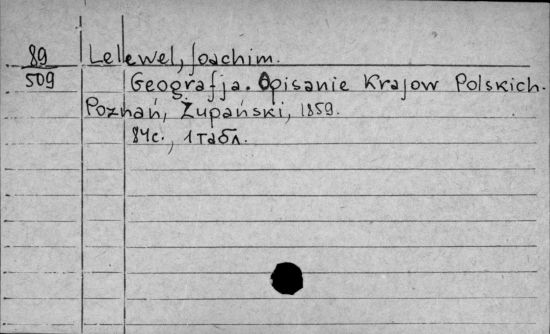 89 Lelewel, Joachim.
509 Geografja. Opisanie Krajow Polskich.
Poznań, Żupański, 1859.
84с., 1 табл.